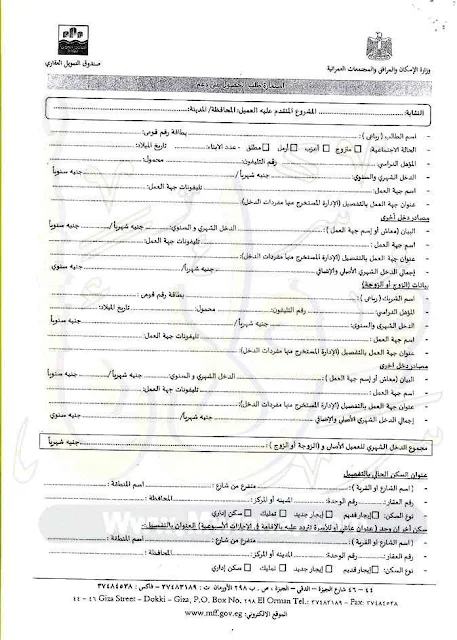 صندوق التمويل العقاري
وزارة الإسكان والمرافق والمجتمعات العمرانية
استمارة طلب الحصول على دعم
النقابة: ........ المشروع المتقدم عليه العميل: المحافظة/ المدينة: ........
- اسم الطالب ( رباعى ) : ........ بطاقة رقم قومى: ........
- الحالة الاجتماعية: □ متزوج □ أعزب □ أرمل □ مطلق - عدد الابناء: ........ تاريخ الميلاد: ........
- المؤهل الدراسي: ........ رقم التليفون: ........ محمول: ........
- الدخل الشهري والسنوي: ........ جنيه شهرياً / ........ جنيه سنوياً
- اسم جهة العمل: ........ تليفونات جهة العمل: ........
- عنوان جهة العمل بالتفصيل (الإدارة المستخرج منها مفردات الدخل): ........
مصادر دخل أخرى
- البيان (معاش أو إسم جهة العمل ) : ........ الدخل الشهري و السنوي: ........ جنيه شهرياً / ........ جنيه سنوياً
- اسم جهة العمل : ........ تليفونات جهة العمل: ........
- عنوان جهة العمل بالتفصيل (الإدارة المستخرج منها مفردات الدخل): ........
- إجمالي الدخل الشهري الأصلي والإضافي ........ جنيه شهرياً / ........ جنيه سنوي
بيانات (الزوج أو الزوجة)
- اسم الشريك ( رباعى ) : ........ بطاقة رقم قومى : ........
- المؤهل الدراسي: ........ رقم التليفون: ........ محمول: ........ تاريخ الميلاد: ........
- الدخل الشهري والسنوي: ........ جنيه شهرياً / ........ جنيه سنوياً
- اسم جهة العمل: ........ تليفونات جهة العمل: ........
- عنوان جهة العمل بالتفصيل (الإدارة المستخرج منها مفردات الدخل): ........
مصادر دخل أخرى
- البيان ( معاش أو إسم جهة العمل ) : ........ الدخل الشهري و السنوي: ........ جنيه شهرياً / ........ جنيه سنوياً
- اسم جهة العمل : ........ تليفونات جهة العمل: ........
- عنوان جهة العمل بالتفصيل (الإدارة المستخرج منها مفردات الدخل): ........
- إجمالي الدخل الشهري الأصلي والإضافي ........ جنيه شهرياً / ........ جنيه سنوي
مجموع الدخل الشهري للعميل الأصلي و (الزوجة أو الزوج ) : ........ جنيه شهرياً
عنوان السكن الحالي بالتفصيل
- ( اسم الشارع او القرية ) : ........ متفرع من شارع : ........ اسم المنطقة : ........
- رقم العقار: ........ رقم الوحدة: ........ المدينه أو المركز: ........ المحافظة : ........
- نوع السكن: □ إيجار قديم □ إيجار جديد □ تمليك □ سكن إداري
سكن أخر إن وجد (عنوان عائلي أو للأسرة تتردد عليه بالإقامة في الاجازات الأسبوعية) العنوان بالتفصيل:-
- ( اسم الشارع او القرية ) : ........ متفرع من شارع : ........ اسم المنطقة : ........
- رقم العقار: ........ رقم الوحدة: ........ المدينة أو المركز: ........ المحافظة : ........
- نوع السكن: □ إيجار قديم □ إيجار جديد □ تمليك □ سكن إداري
٤٤ - ٤٦ شارع الجيزة - الدقي - الجيزة ، ص . ب ٢٩٨ الأورمان ت : ٣٧٤٨٣١٨٩ - فاكس : ٣٧٤٨٤٥٣٨
٤٤ - ٤٦ Giza Street – Dokki – Giza, P.O. Box No. ٢٩٨ El Orman Tel.: ٣٧٤٨٣١٨٩ – Fax: ٣٧٤٨٤٥٣٨
الموقع الإلكتروني: www.mff.gov.eg